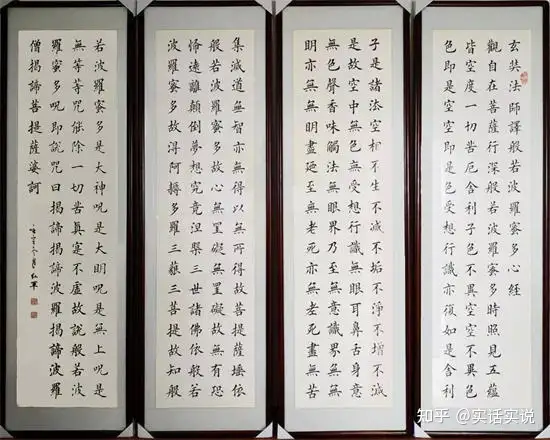 玄奘法師譯般若波羅蜜多心經
觀自在菩薩行深般若波羅蜜多時照見五蘊
皆空度一切苦厄舍利子色不異空空不異色
色即是空空即是色受想行識亦復如是舍利
子是諸法空相不生不滅不垢不淨不增不減
是故空中無色無受想行識無眼耳鼻舌身意
無色聲香味觸法無眼界乃至無意識界無無
明亦無無明盡廼至無老死亦無老死盡無苦
集滅道無智亦無得以無所得故菩提薩埵依
般若波羅蜜多故心無罣礙無罣礙故無有恐
怖遠離顛倒夢想究竟涅槃三世諸佛依般若
波羅蜜多故得阿耨多羅三藐三菩提故知般
若波羅蜜多是大神咒是大明咒是無上咒是
無等等咒能除一切苦真實不虛故說般若波
羅蜜多咒即說咒曰揭諦揭諦波羅揭諦波羅
僧揭諦菩提薩婆訶
知乎 @实话实说